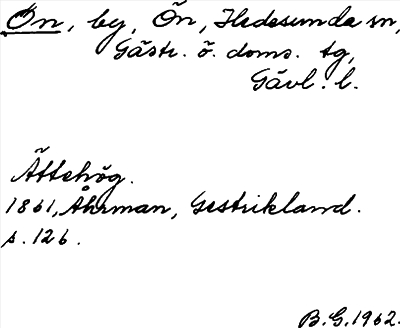 Ön, by, Ön, Hedesunda sn,
Gästr. ö. doms. tg,
Gävl. l.
Ättehög.
1861, Åhrman, Gestrikland.
s. 126.
B.G. 1962.